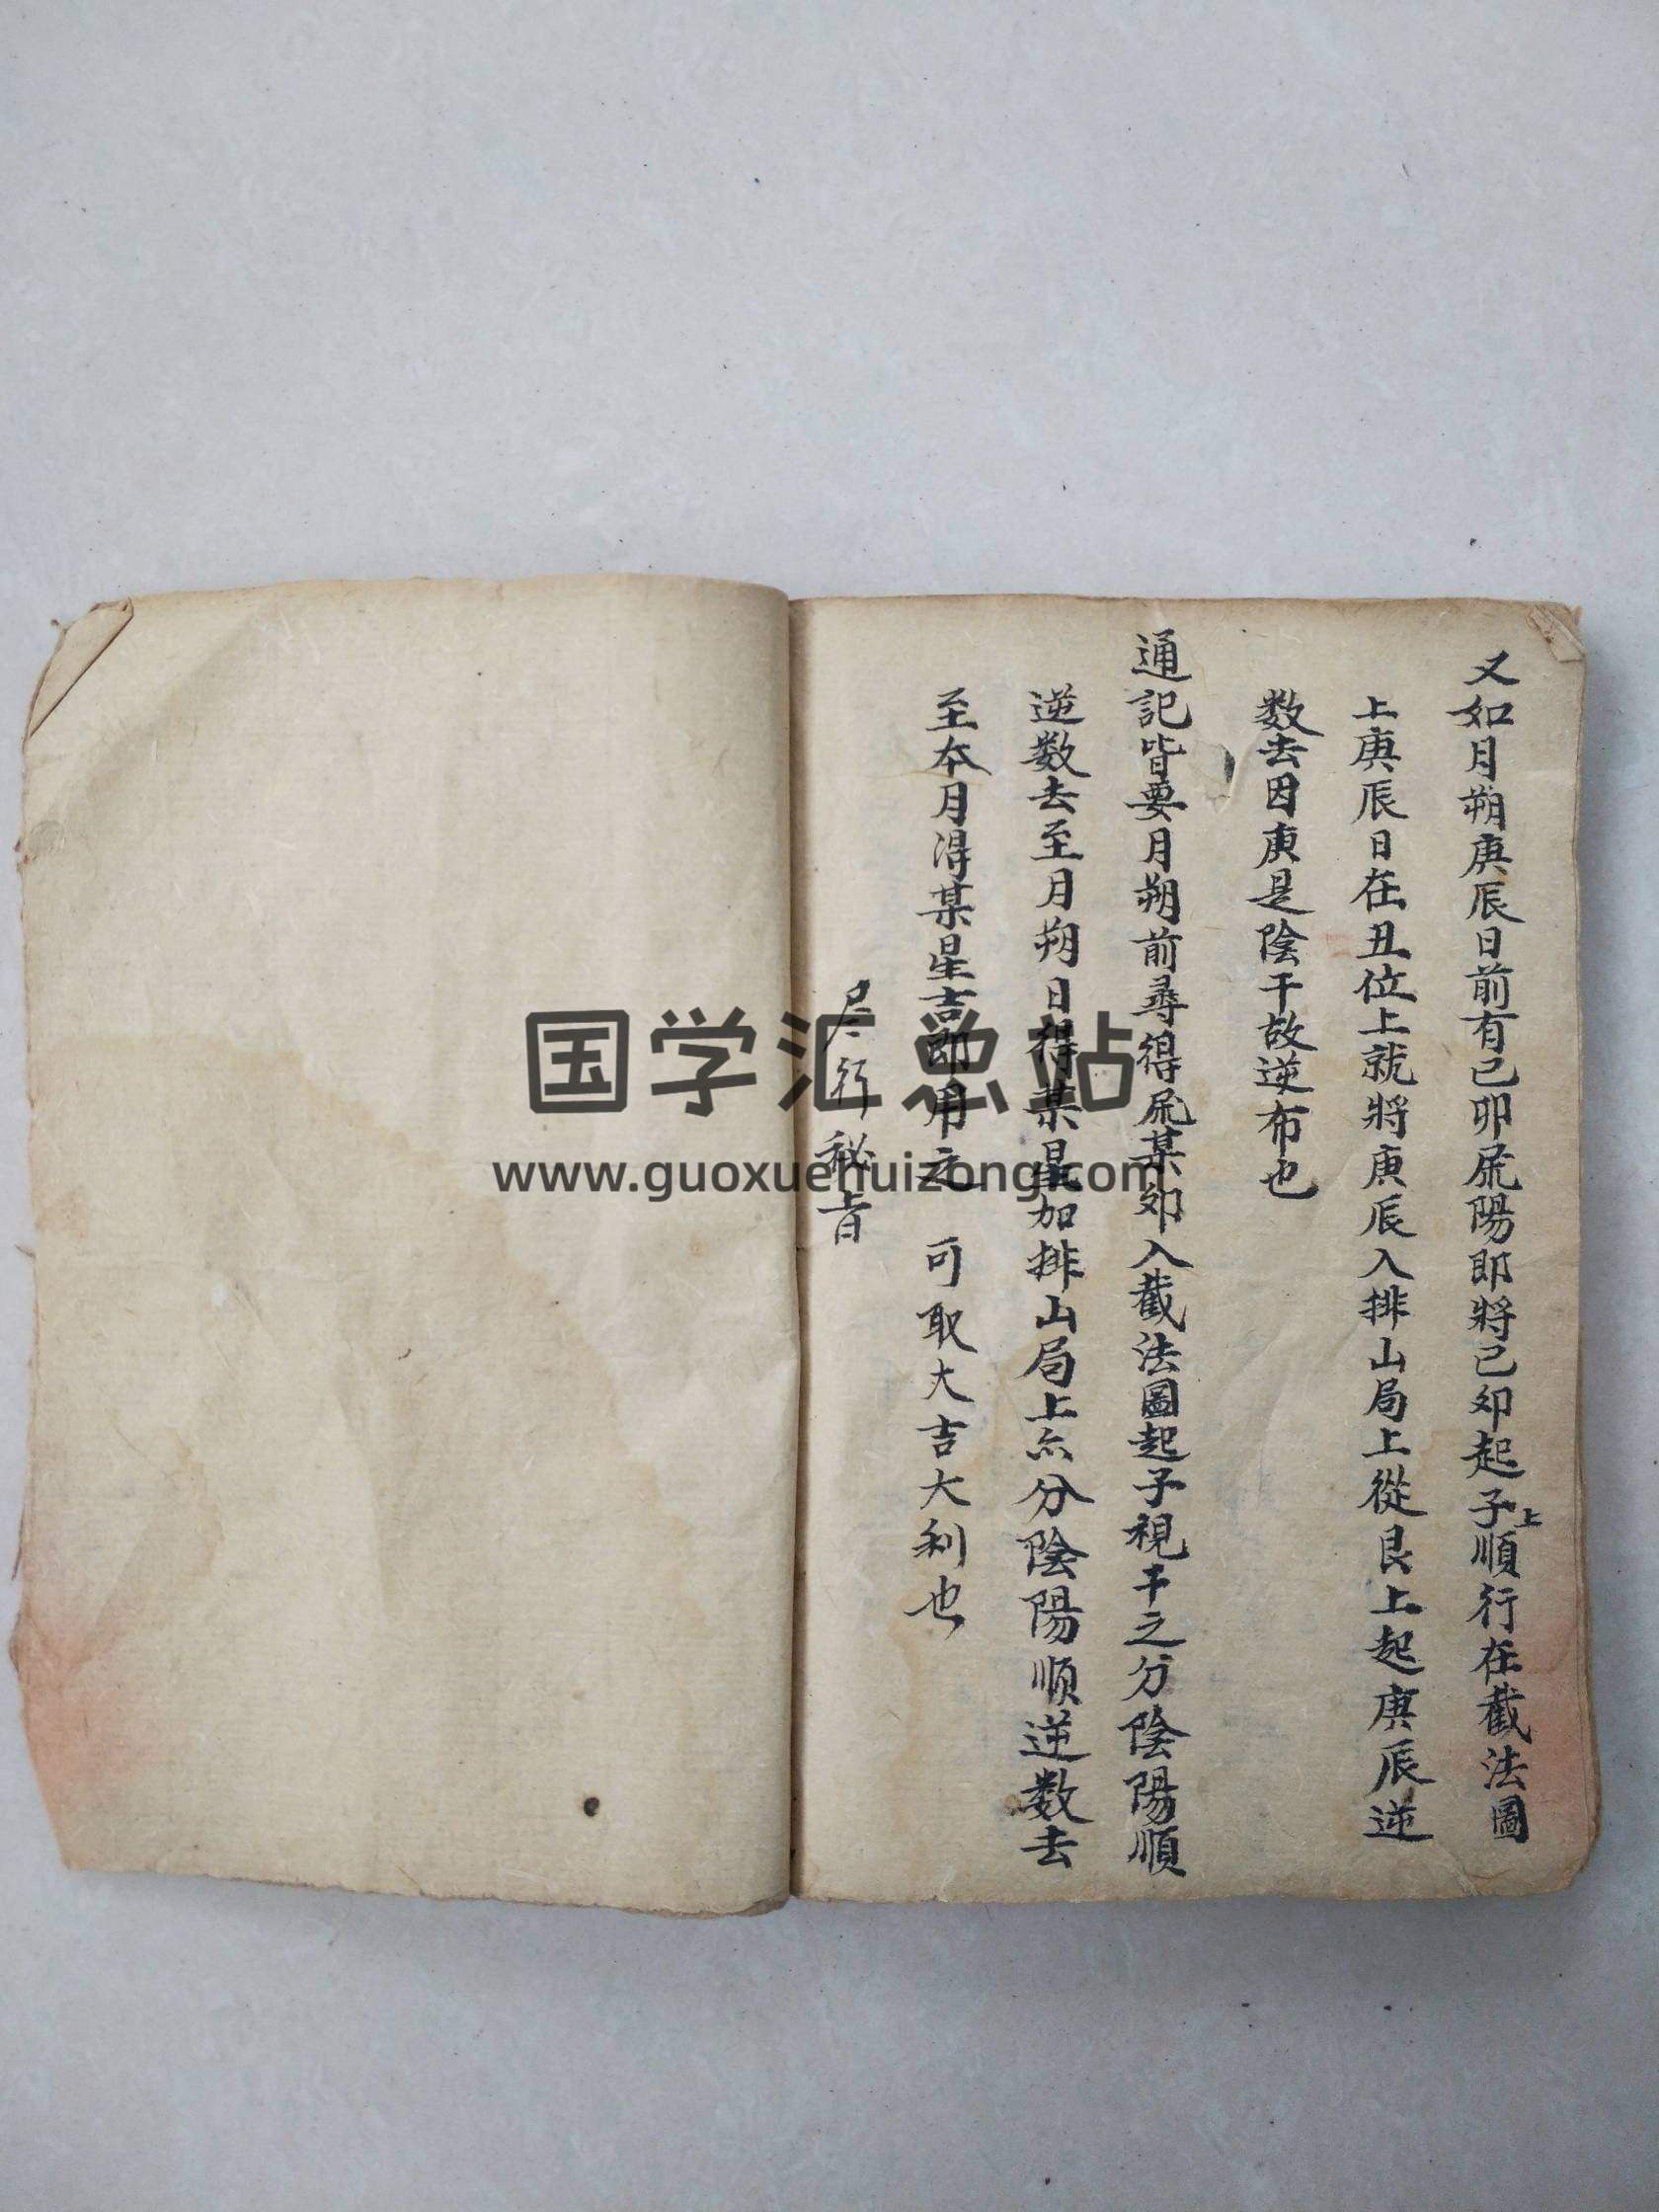 又如月朔庚辰日前有己卯屁陽即將己卯起子上順行在截法圖
上庚辰日在丑位上就將庚辰入排山局上從艮上起庚辰逆
数去因庚是陰干故逆布也
通記皆要月朔前尋得屁某卯入截法圖起子視干之分陰陽順
逆数去至月朔日得某星加排山局上亦分陰陽顺逆数去
至本月得某星吉即用之 可取大吉大利也
秘旨
国学汇总站
www.guoxuehuizong.com